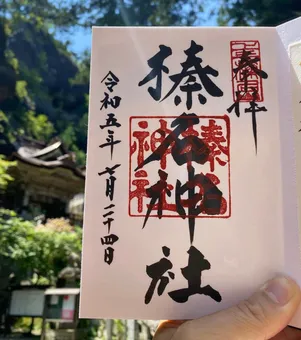 奉拝
榛名神社
榛名
神社
令和五年七月二十四日